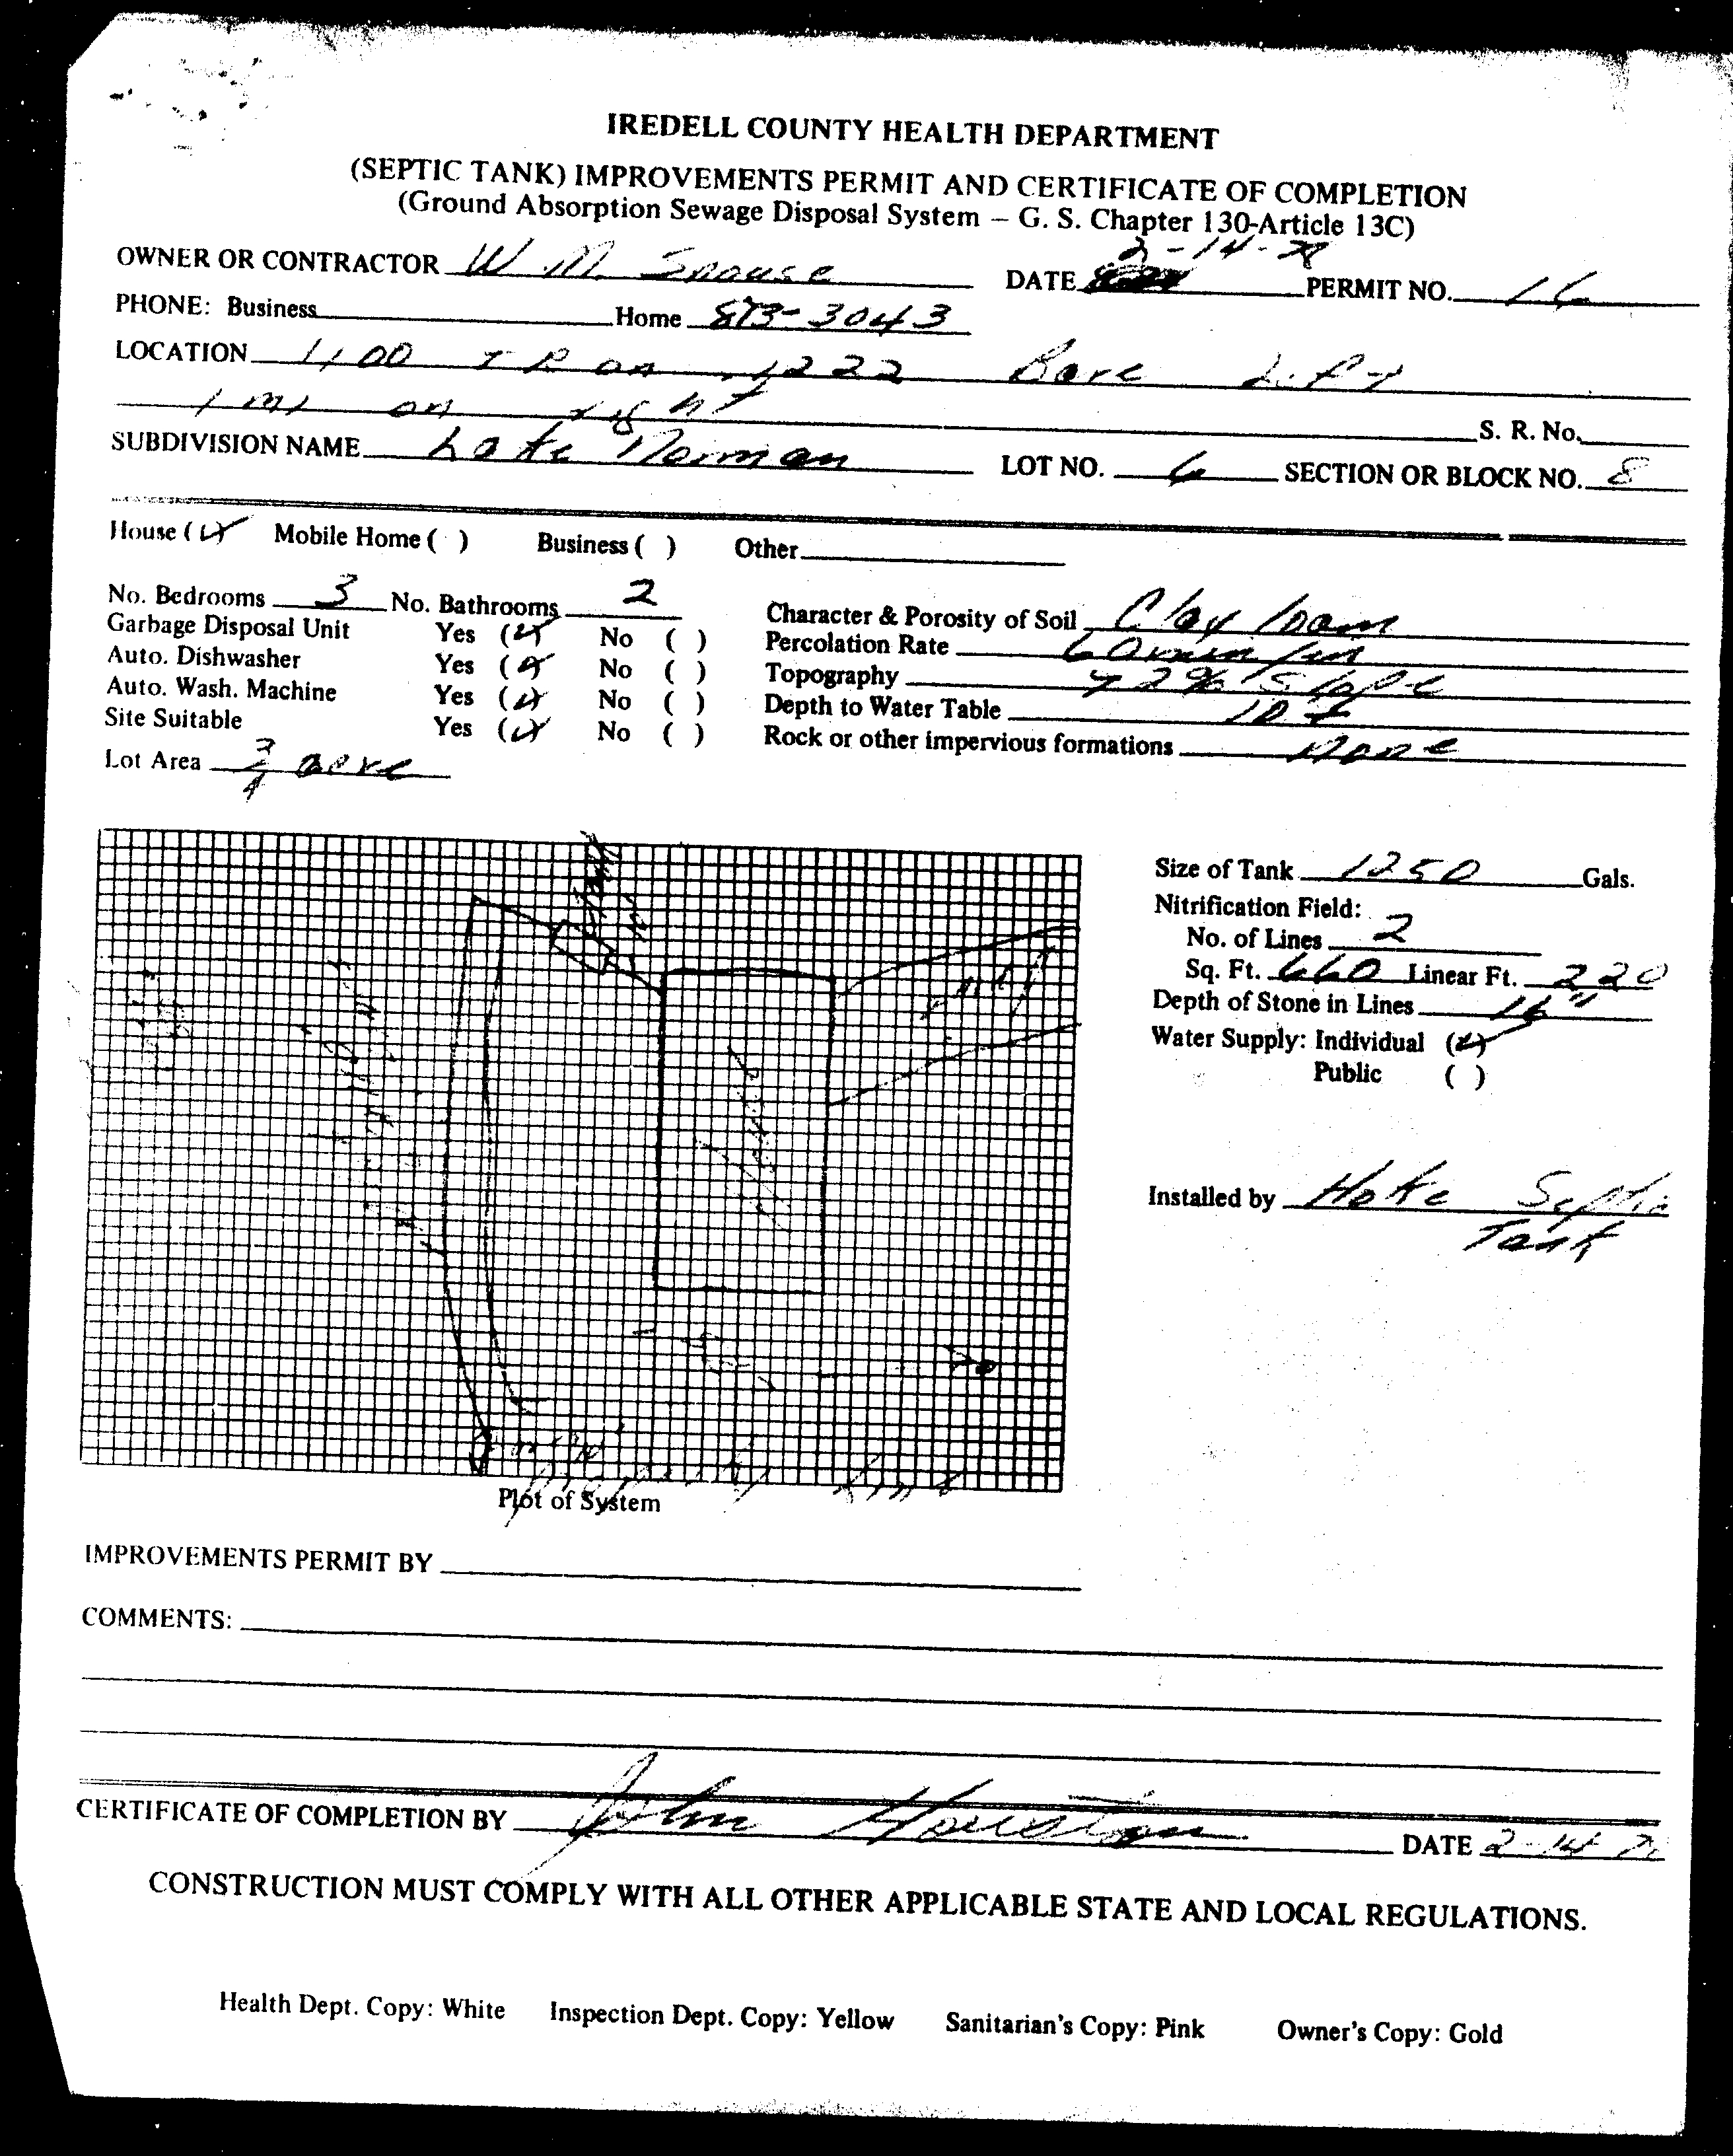 IREDELL COUNTY HEALTH DEPARTMENT
(SEPTIC TANK) IMPROVEMENTS PERMIT AND CERTIFICATE OF COMPLETION
(Ground Absorption Sewage Disposal System — G. S. Chapter 130-Article 13C)
OWNER OR CONTRACTOR W M Spouse DATE 2-14- PERMIT NO. 16
PHONE: Business Home 873-3043
LOCATION on 1222
1 mi on right S. R. No.
SUBDIVISION NAME Lake Norman LOT NO. 6 SECTION OR BLOCK NO. 8
House (✓) Mobile Home ( ) Business ( ) Other
No. Bedrooms 3 No. Bathrooms 2 Character & Porosity of Soil Clay loam
Garbage Disposal Unit Yes (✓) No ( ) Percolation Rate 60 min/in
Auto. Dishwasher Yes (✓) No ( ) Topography 2% Slope
Auto. Wash. Machine Yes (✓) No ( ) Depth to Water Table 10 +
Site Suitable Yes (✓) No ( ) Rock or other impervious formations None
Lot Area 3/4 acre
Size of Tank 1250 Gals.
Nitrification Field:
No. of Lines 2
Sq. Ft. 660 Linear Ft. 220
Depth of Stone in Lines 16"
Water Supply: Individual (✓)
Public ( )
Installed by Hoke Septic
Tank
Plot of System
IMPROVEMENTS PERMIT BY
COMMENTS:
CERTIFICATE OF COMPLETION BY John Houston DATE 2-14
CONSTRUCTION MUST COMPLY WITH ALL OTHER APPLICABLE STATE AND LOCAL REGULATIONS.
Health Dept. Copy: White Inspection Dept. Copy: Yellow Sanitarian's Copy: Pink Owner's Copy: Gold